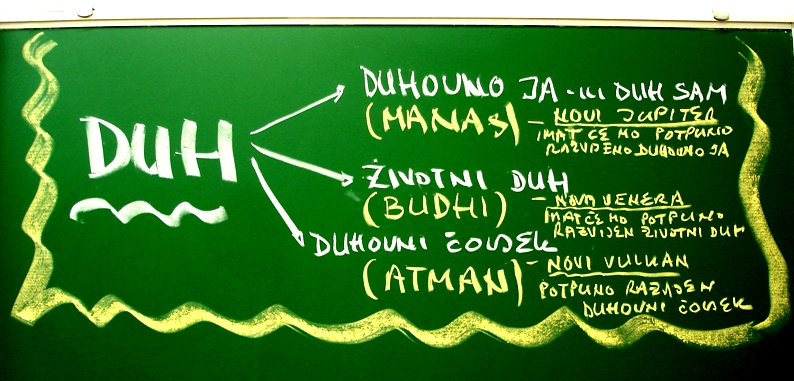 DUH
DUHOVNO JA - ILI DUH SAM
(MANAS) - NOVI JUPITER
IMAT ĆE MO POTPUNO
RAZVIJENO DUHOVNO JA
ŽIVOTNI DUH
(BUDHI) - NOVA VENERA
IMAT ĆE MO POTPUNO
RAZVIJEN ŽIVOTNI DUH
DUHOVNI ČOVJEK
(ATMAN) - NOVI VULKAN
POTPUNO RAZVIJEN
DUHOVNI ČOVJEK